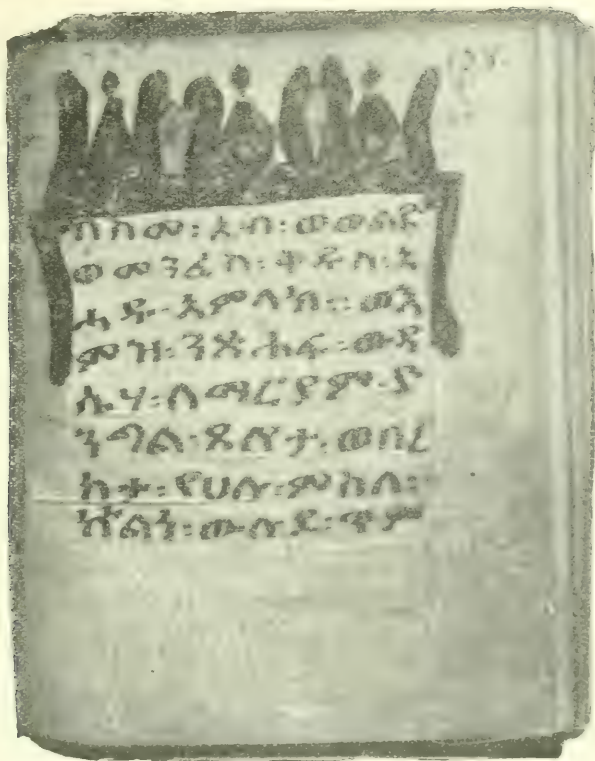 በስመ፡አብ፡ወወልድ
ወመንፈስ፡ቅዱስ፡አ
ሓዱ፡አምላክ፡፡ወእ
ምዝ፡ንጽሕፍ፡ውዳ
ሴሃ፡ለማርያም፡ድ
ንግል፡ጸሎታ፡ወበረ
ከታ፡የሀሉ፡ምስለ፡
ኵልነ፡ውሉደ፡ጥም